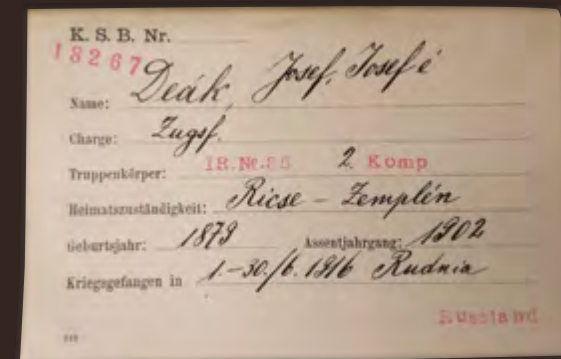 K. S. B. Nr.
18267
Name: Deák, Josef, Josef é
Charge: Zugsf.
Truppenkörper: IR. Nr. 85 2. Komp
Heimatszuständigkeit: Ricse - Zemplén
Geburtsjahr: 1879 Assentjahrgang: 1902
Kriegsgefangen in 1.-30./6. 1916 Rudnia
Russland